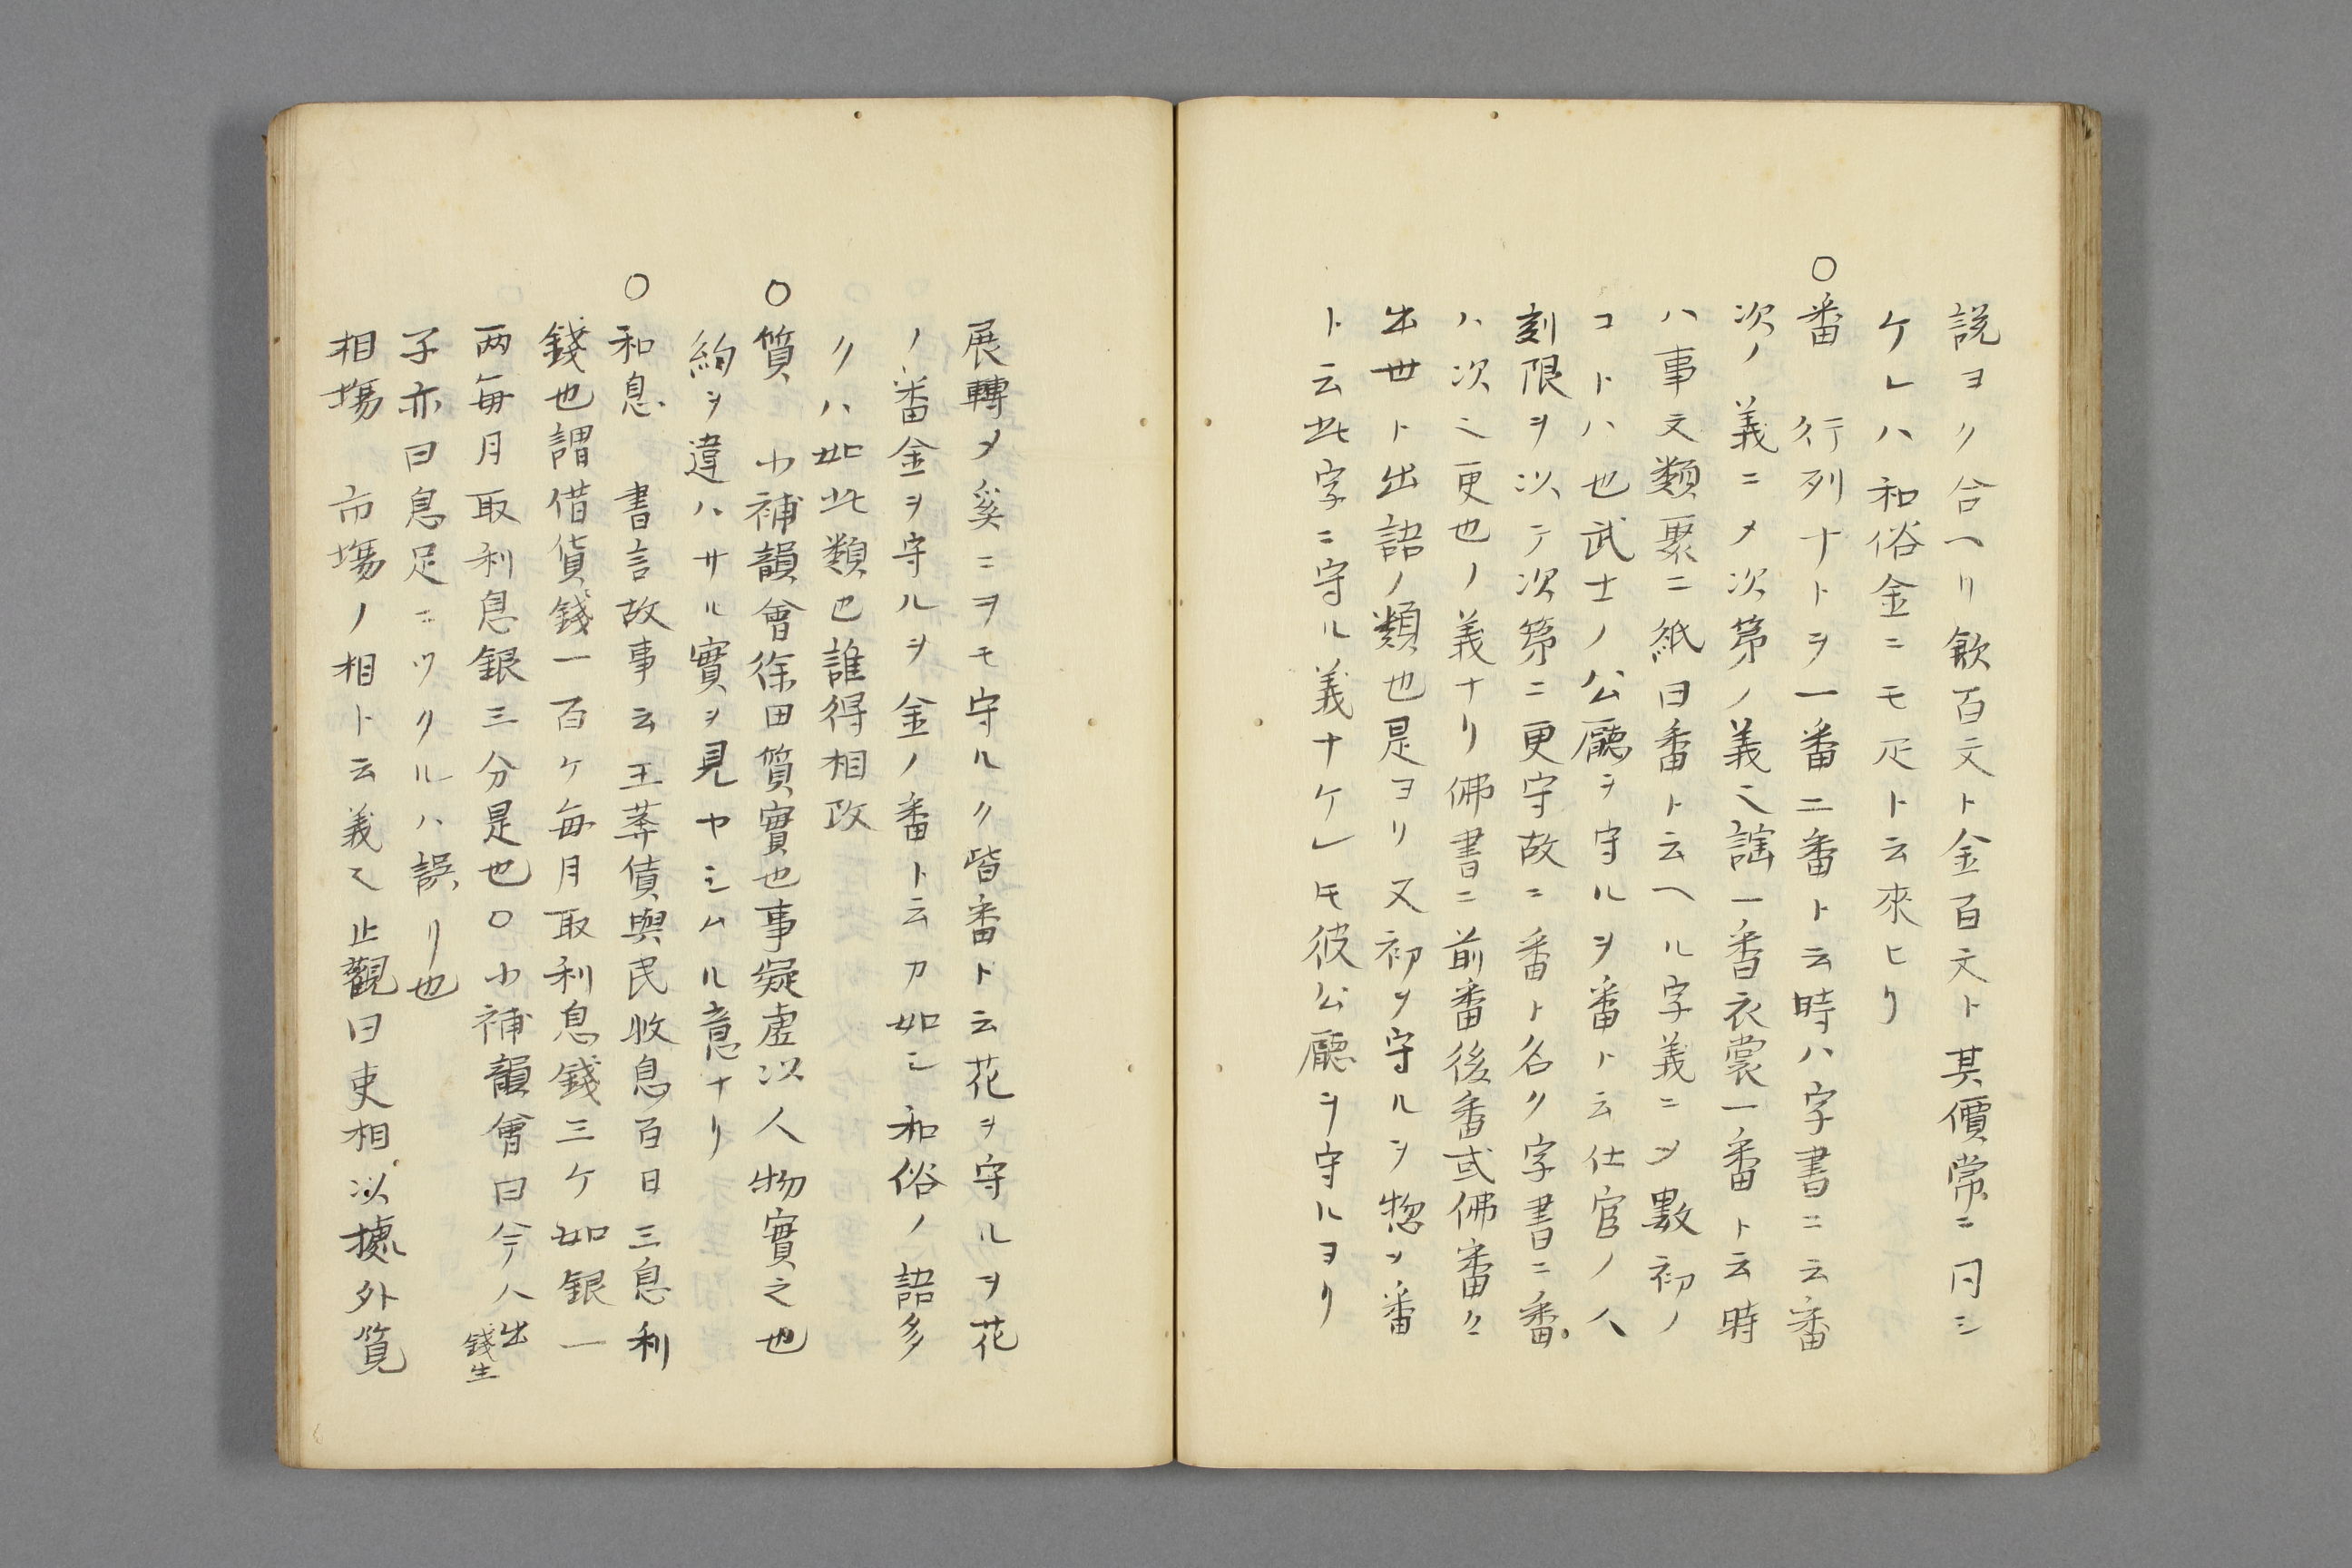 説ヨク合ヘリ歛百文ト金百文ト其價常ニ同シ
ケレハ和俗金ニモ疋ト云來ヒリ
○番　行列ナトヲ一番二番ト云時ハ字書ニ云番
次ノ義ニメ次第ノ義ニ謡一番衣裳一番ト云時
ハ事文類聚ニ紙曰番ト云ヘル字義ニメ數初ノ
コトハ也武士ノ公廳ヲ守ルヲ番ト云仕官ノ人
刻限ヲ以テ次第ニ更守故ニ番ト名ク字書ニ番
ハ次之更也ノ義ナリ佛書ニ前番後番或佛番々
出世ト出語ノ類也是ヨリ又初ヲ守ルヲ惣ソ番
ト云此字ニ守ル義ナケレモ彼公廳ヲ守ルヨリ
展轉メ奚ニヲモ守ルク皆番ト云花ヲ守ルヲ花
ノ番金ヲ守ルヲ金ノ番ト云カ如シ和俗ノ語多
クハ如此類巳誰得相改
○質　小補韻會徐曰質實也事疑虚以人物實之也
約ヲ違ハサル實ヲ見ヤシムル意ナリ
○和息　書言故事云王莽債與民收息百日三息利
錢也謂借貨錢一百ケ毎月取利息錢三ケ如銀一
两毎月取利息銀三分是也○小補韻會曰今人出
錢生
子亦曰息足ニツクルハ誤リ也
相塲　市塲ノ相ト云義也止觀曰吏相以攄外覓